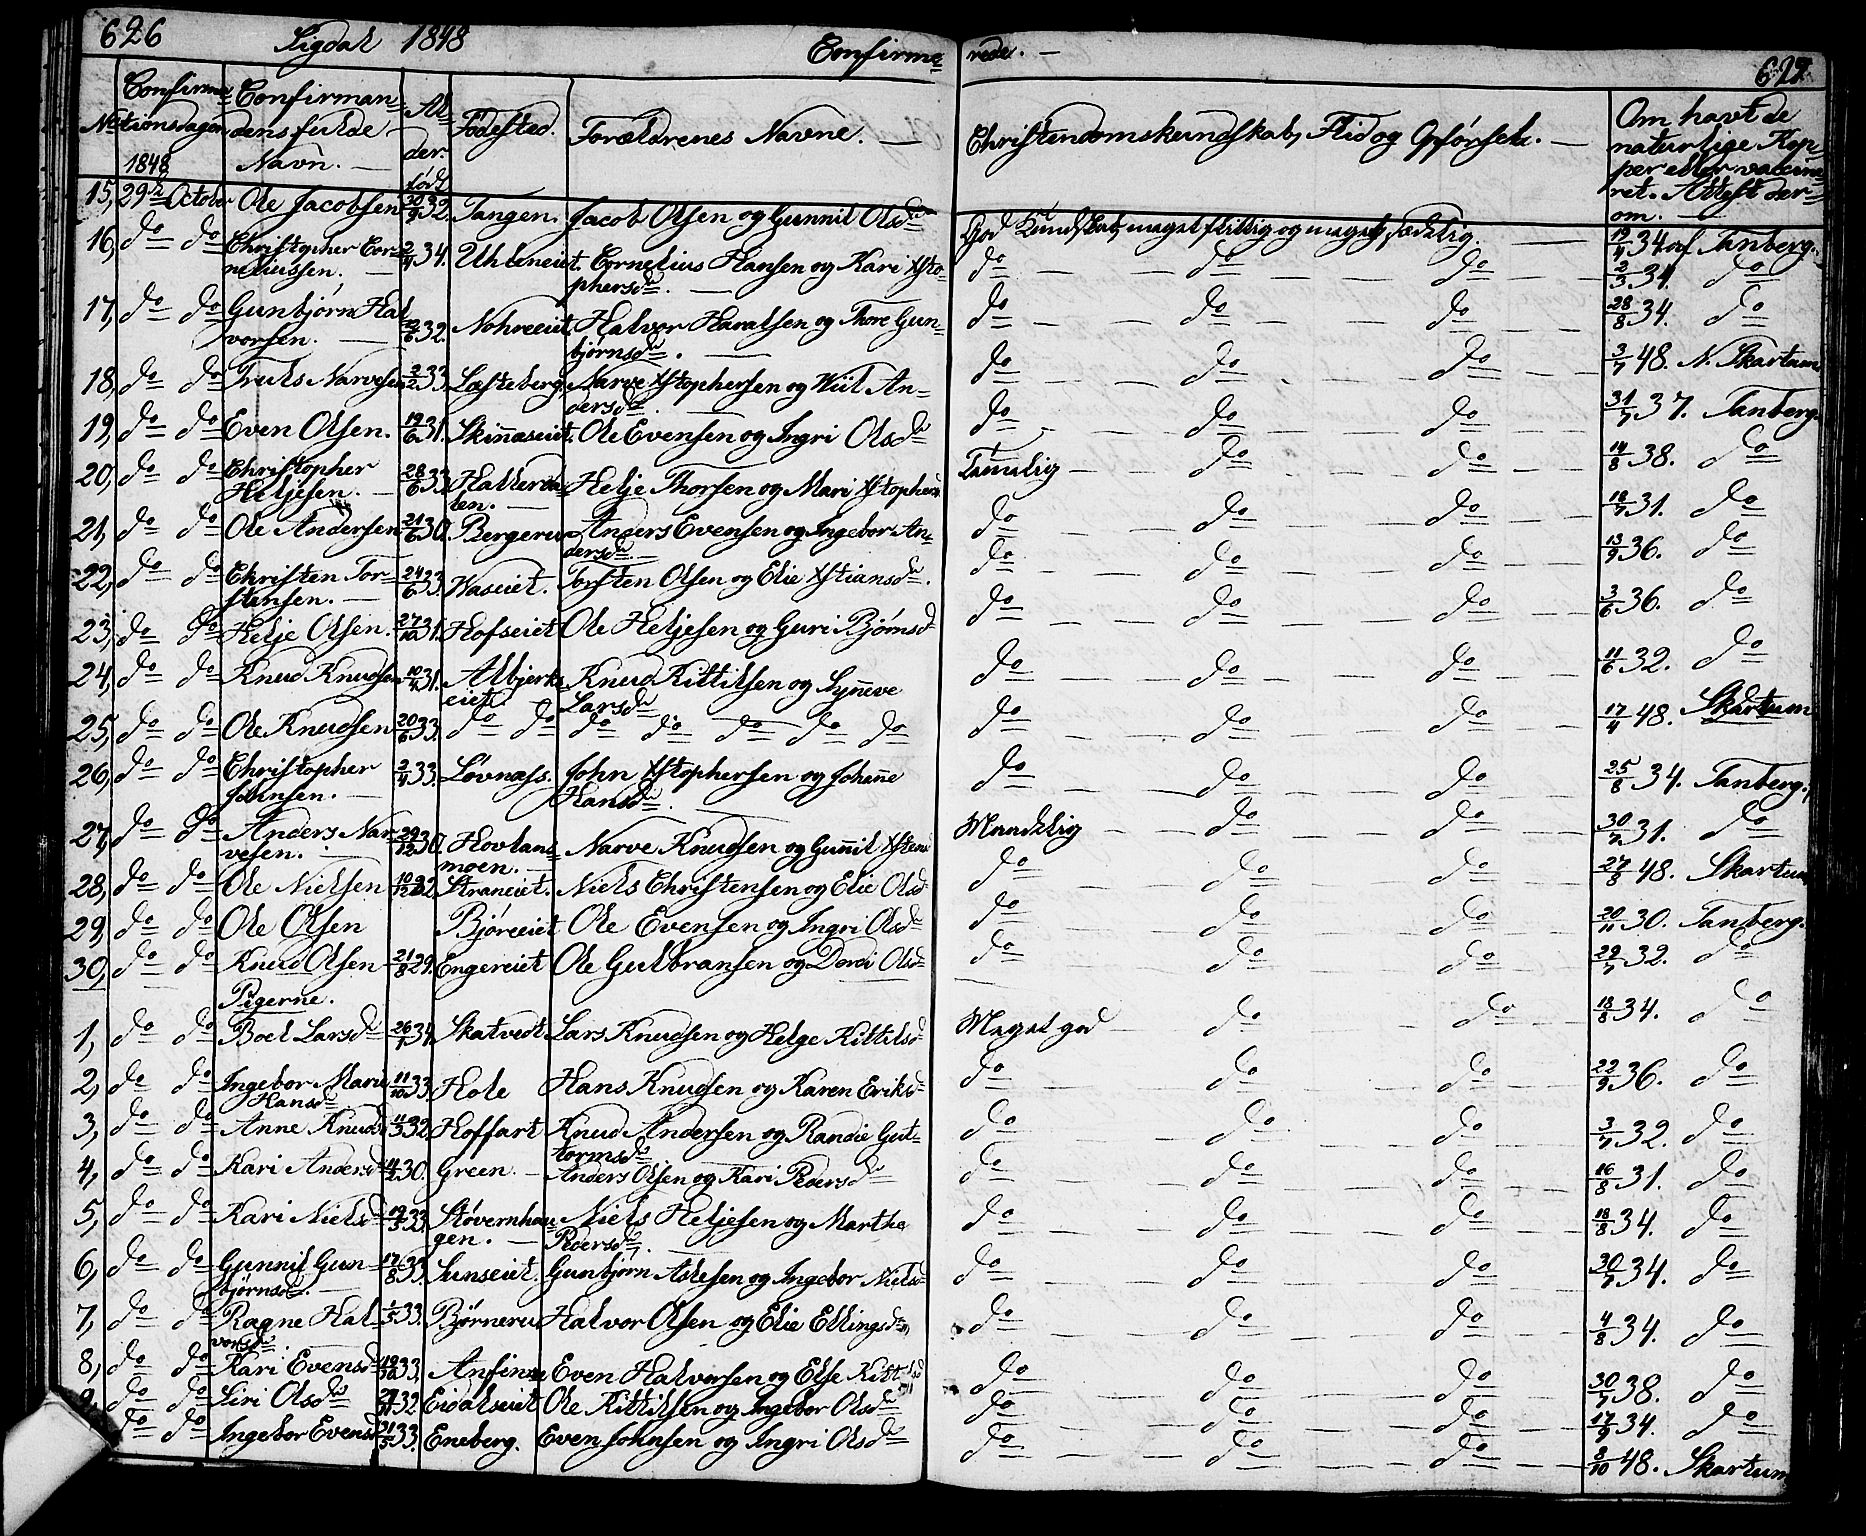 626 Sigdal 1848 Confirme=
rede. — 627.
Confirma= Confirman= Al=
No tionsdagen dens fulde — Fødested. Forældrenes Navne. —
1848 Navn. — der. født
Christendomskundskab, Flid og Opførsel. —
Om havt de
naturlige Kop=
per eller vaccine=
ret. Attest der=
om. —
15, 29de October Ole Jacobsen 30/9 32. Tangen. Jacob Olsen og Gunnil Olsdr God Kundskab, meget flittig og meget sædelig. — 19/4 34 af Tanberg.
16, do do Christopher Cor= 2/4 34. Uhleneiet. Cornelius Hansen og Kari Xsto= do do do 2/3 34. do
neliussen. — phersdr. —
17, do do Gunbjørn Hal 6 32. Nohreeiet. Halvor Haralsen og Thore Gun= do do do 28/8 34. do
vorsen. — bjørnsdr. —
18, do do Truls Narvesen 2/2 33. Lasteberg. Narve Xstophersen og Kiil An= do do do 3/7 48. N. Skartum
dersdr. —
19, do do Even Olsen. 19/6 31. Skinaseiet. Ole Evensen og Ingri Olsdr do do do 31/7 37. Tanberg.
20, do do Christopher 28/6 33. Hallerda= Helje Thorsen og Mari Xstophers Tamelig do do 14/8 38. do
Heljesen. — len. —
21, do do Ole Andersen 21/6 30. Bergerud Anders Evensen og Ingebor An= do do do 18/7 31. do
dersdr —
22, do do Christen Tor= 24/6 33. Waseiet. Torsten Olsen og Elie Xstiansdr. do do do 13/9 36. do
stensen. —
23, do do Helje Olsen. 27/10 31. Hofseiet Ole Heljesen og Guri Bjørnsd do do do 3/6 36. do
24, do do Knud Knudsen 10/4 31. Albjerks Knud Kittilsen og Synneve do do do 11/6 32. do
eiet. Larsdr
25, do do Ole Knudsen 20/6 33. do do do do do do do do do do 17/4 48. Skartum
26, do do Christopher 2/4 33. Løvnæss. John Xstophersen og Johanne do do do 25/8 34. Tanberg.
Johnsen. — Hansdr. —
27, do do Anders Nar= 29/12 30. Hovlans= Narve Knudsen og Gunnil Xstens Maadelig do do 30/7 31. do
vesen. — moen. —
28, do do Ole Nielsen 10/12 32. Straneiet. Niels Christensen og Elie Olsd do do do 27/8 48. Skartum
29, do do Ole Olsen Bjøreeiet Ole Evensen og Ingri Olsdr do do do 20/11 30. Tanberg.
30, do do Knud Olsen 21/8 29. Engereiet Ole Gulbransen og Dordi Olsdr do do do 29/7 32. do
Pigerne.
1, do do Boel Larsdr 26/7 34. Skatvedt. Lars Knudsen og Helge Kittilsd Meget god do do 18/8 34. do
2, do do Ingebor Marie 11/10 33. Hole Hans Knudsen og Karen Eriksd do do do 22/9 36. do
Hansdr
3, do do Anne Knuds 11/3 32. Hoffart Knud Andersen og Randie Gut= do do do 3/7 32. do
tormsdr
4, do do Kari Andersdr 30. Green. — Anders Olsen og Kari Pedersdr do do do 16/8 31. do
5, do do Kari Nielsd 19/3 33. Støvernhau= Niels Heljesen og Marthe do do do 18/8 34. do
gen. — Pedersdr. —
6, do do Gunnil Gun= 17/8 33. Sunseiet. Gunbjørn Aslesen og Ingebor Nielsd do do do 30/7 34. do
bjørnsdr. —
7, do do Ragne Hal= 1/3 33. Børnerud Halvor Olsen og Elie Ellingsdr do do do 4/8 34. do
vorsdr.
8, do do Kari Evensd 19/10 33. Anfinru Even Halvorsen og Else Kittelsd do do do 30/7 38. do
9, do do Siri Olsdr 32. Eidalseiet Ole Kittilsen og Ingebor Olsdr do do do 17/9 34. do
do do Ingebor Evensd 21/5 33. Eneberg. Even Johnsen og Ingri Olsdr do do do 8/10 48. Skartum